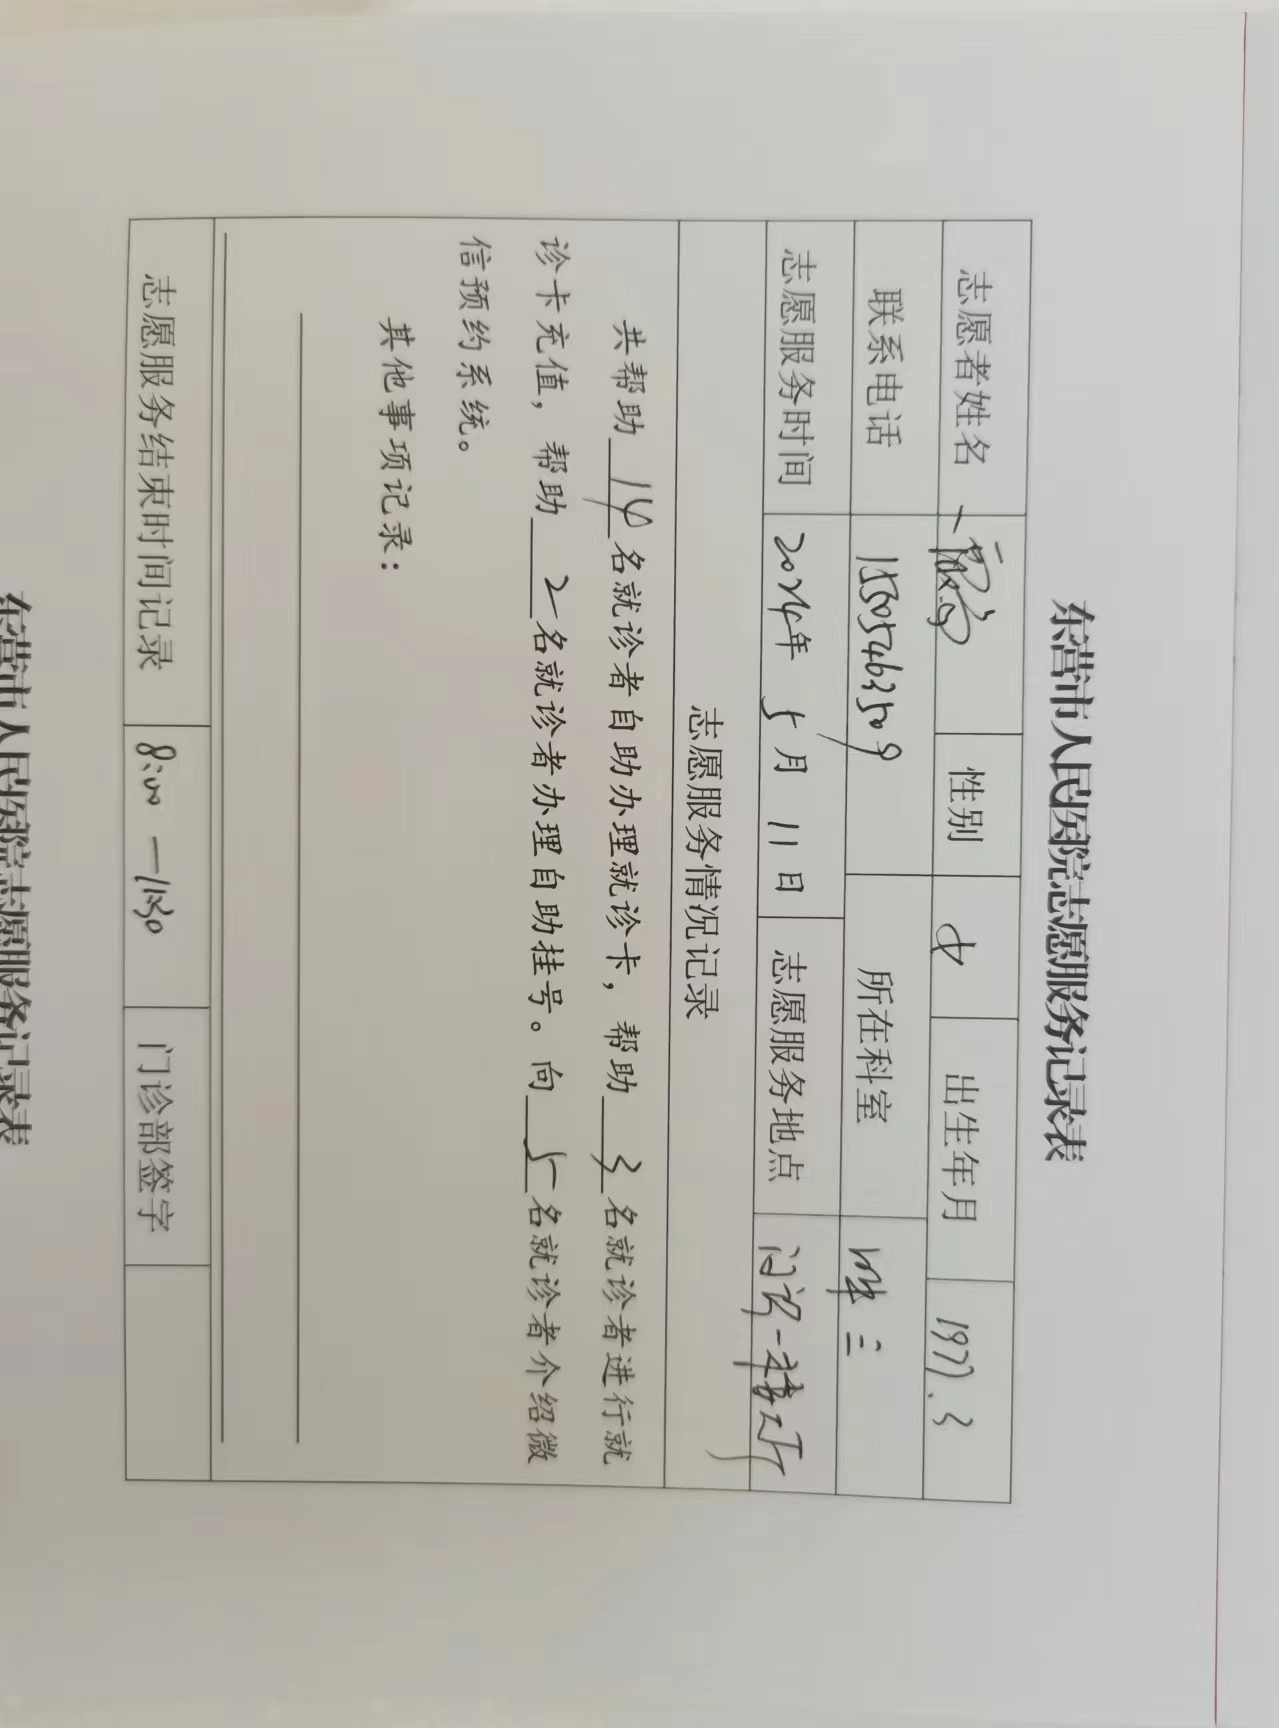 东营市人民医院志愿服务记录表
志愿者姓名 性别 女 出生年月 1977.3
联系电话 15505463509 所在科室
志愿服务时间 2024年 5月 11日 志愿服务地点 门诊一楼大厅
志愿服务情况记录
共帮助14名就诊者自助办理就诊卡，帮助3名就诊者进行就
诊卡充值，帮助2名就诊者办理自助挂号。向5名就诊者介绍微
信预约系统。
其他事项记录：
志愿服务结束时间记录 8:00-11:30 门诊部签字
东营市人民医院志愿服务记录表